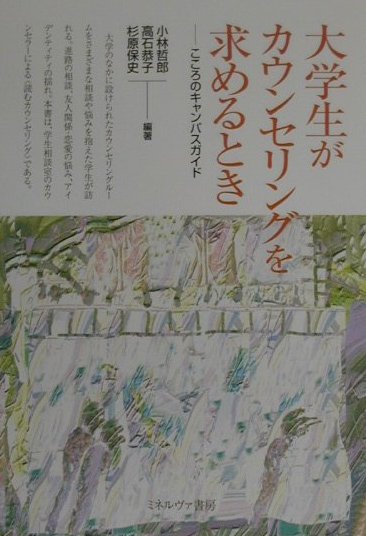 大学生が
カウンセリングを
求めるとき
──こころのキャンパスガイド
小林哲郎
高石恭子
杉原保史
編著
大学のなかに設けられたカウンセリングルー
ムをさまざまな相談や悩みを抱えた学生が訪
れる。進路の相談、友人関係・恋愛の悩み、アイ
デンティティの揺れ。本書は、学生相談室のカウ
ンセラーによる〈読むカウンセリング〉である。
ミネルヴァ書房